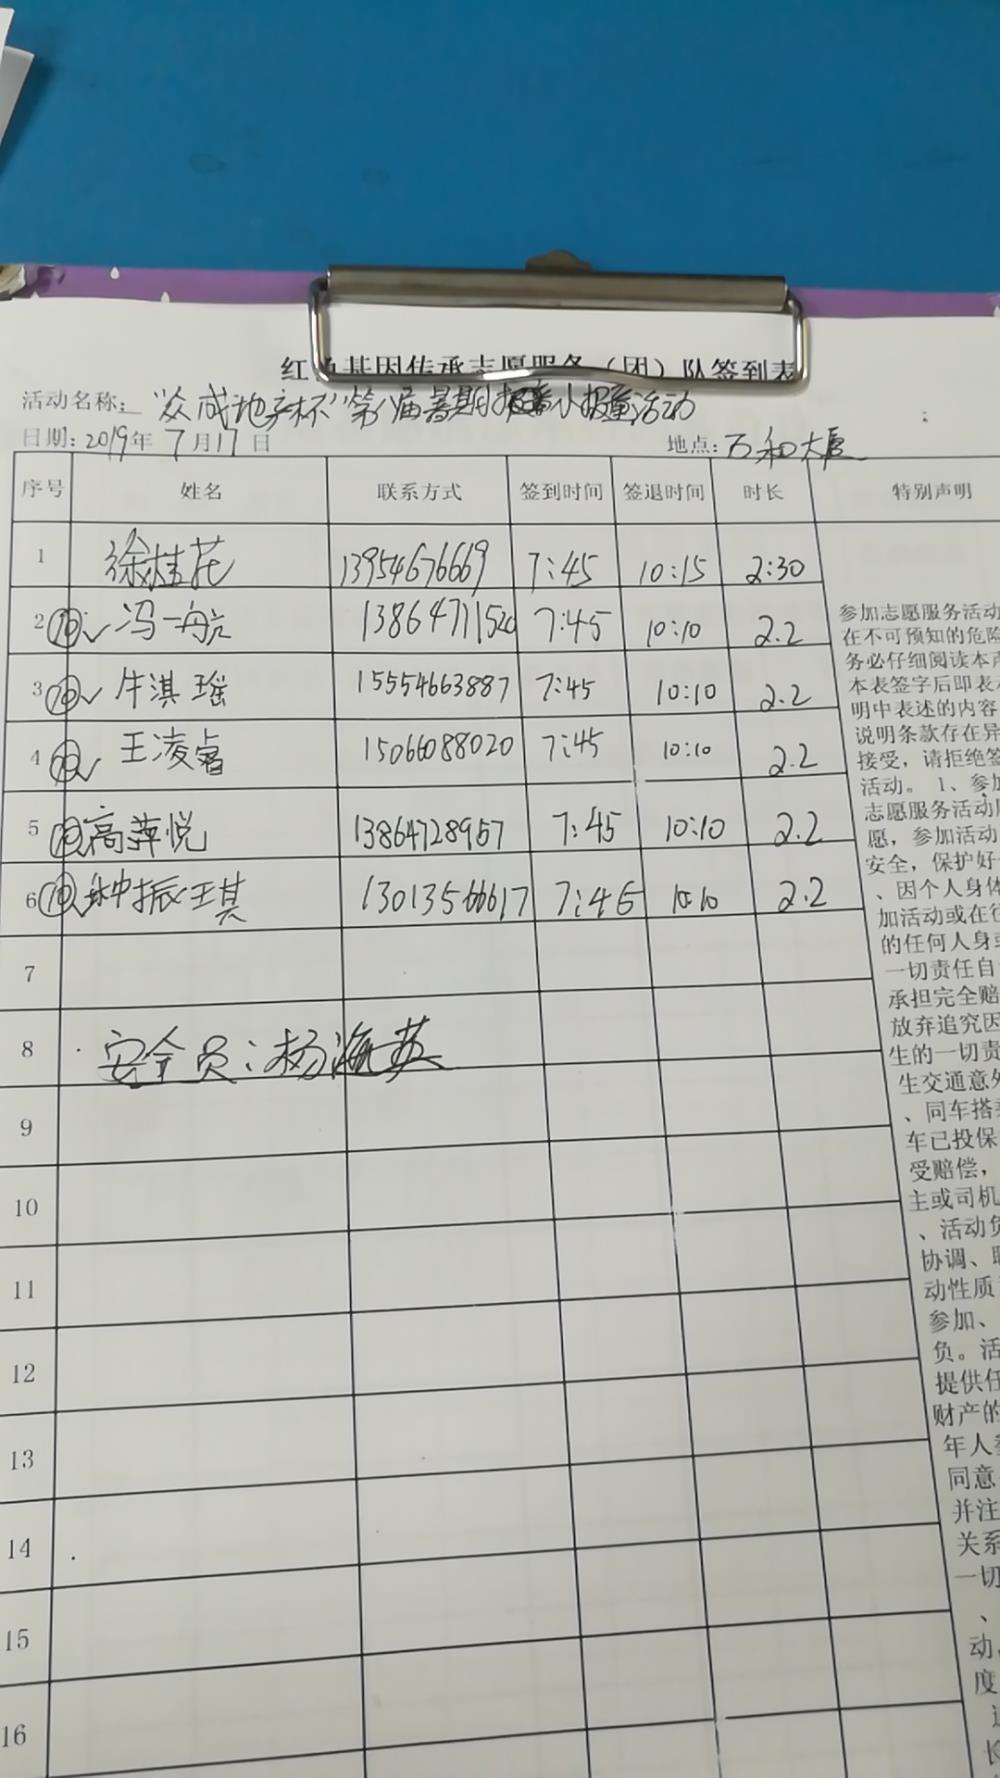 红色基因传承志愿服务（团）队签到表
活动名称：“众成地产杯”第八届暑期小报童活动
日期：2019年7月17日 地点：万和大厦
序号 姓名 联系方式 签到时间 签退时间 时长 特别声明
1 徐桂花 13954676669 7:45 10:15 2:30
2 冯一航 13864711520 7:45 10:10 2.2
3 牛淇瑶 15554663887 7:45 10:10 2.2
4 王凌睿 15066088020 7:45 10:10 2.2
5 高萍悦 13864728957 7:45 10:10 2.2
6 种振其 13013566617 7:46 10:10 2.2
7
8 安全员：杨海英
9
10
11
12
13
14
15
16
参加志愿服务活动
在不可预知的危险
务必仔细阅读本声
本表签字后即表示
明中表述的内容
说明条款存在异
接受，请拒绝签
活动。 1、参加
志愿服务活动
愿，参加活动
安全，保护好
、因个人身体
加活动或在往
的任何人身或
一切责任自
承担完全赔
放弃追究因
生的一切责
生交通意外
、同车搭乘
车已投保
受赔偿，
主或司机
、活动负
协调、联
动性质
参加、
负。活
提供任
财产的
年人参
同意
并注
关系
一切
、
动，
度